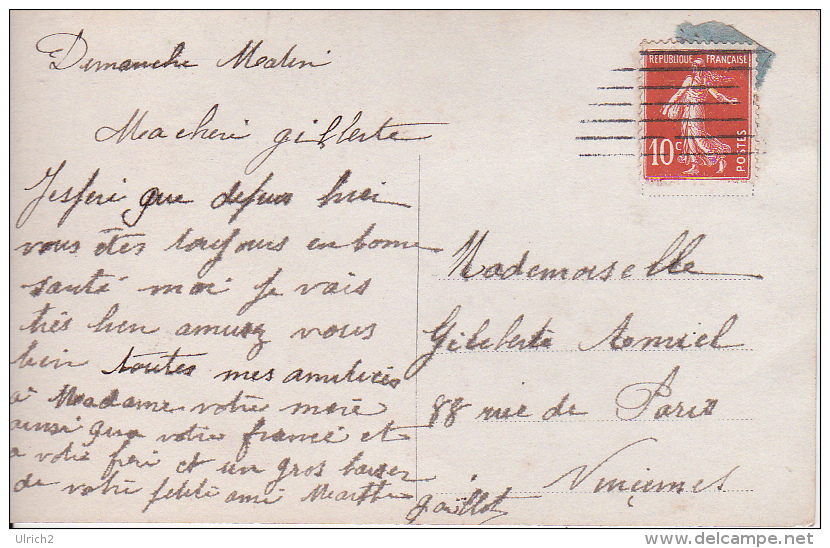 Dimanche Matin
Ma cheri gilberte
J'esperé que depuis hier
vous êtes toujours en bonne
santé moi je vais
très bien amusez vous
bien toutes mes amitiées
à Madame votre mère
ainsi que votre francé et
a votre frère et un gros baiser
de votre petite ami Marthe
Jaillot
REPUBLIQUE FRANÇAISE
10 c
POSTES
Mademoiselle
Gilberte Amiel
88 rue de Paris
Vincennes
Ulrich2
www.delcampe.net